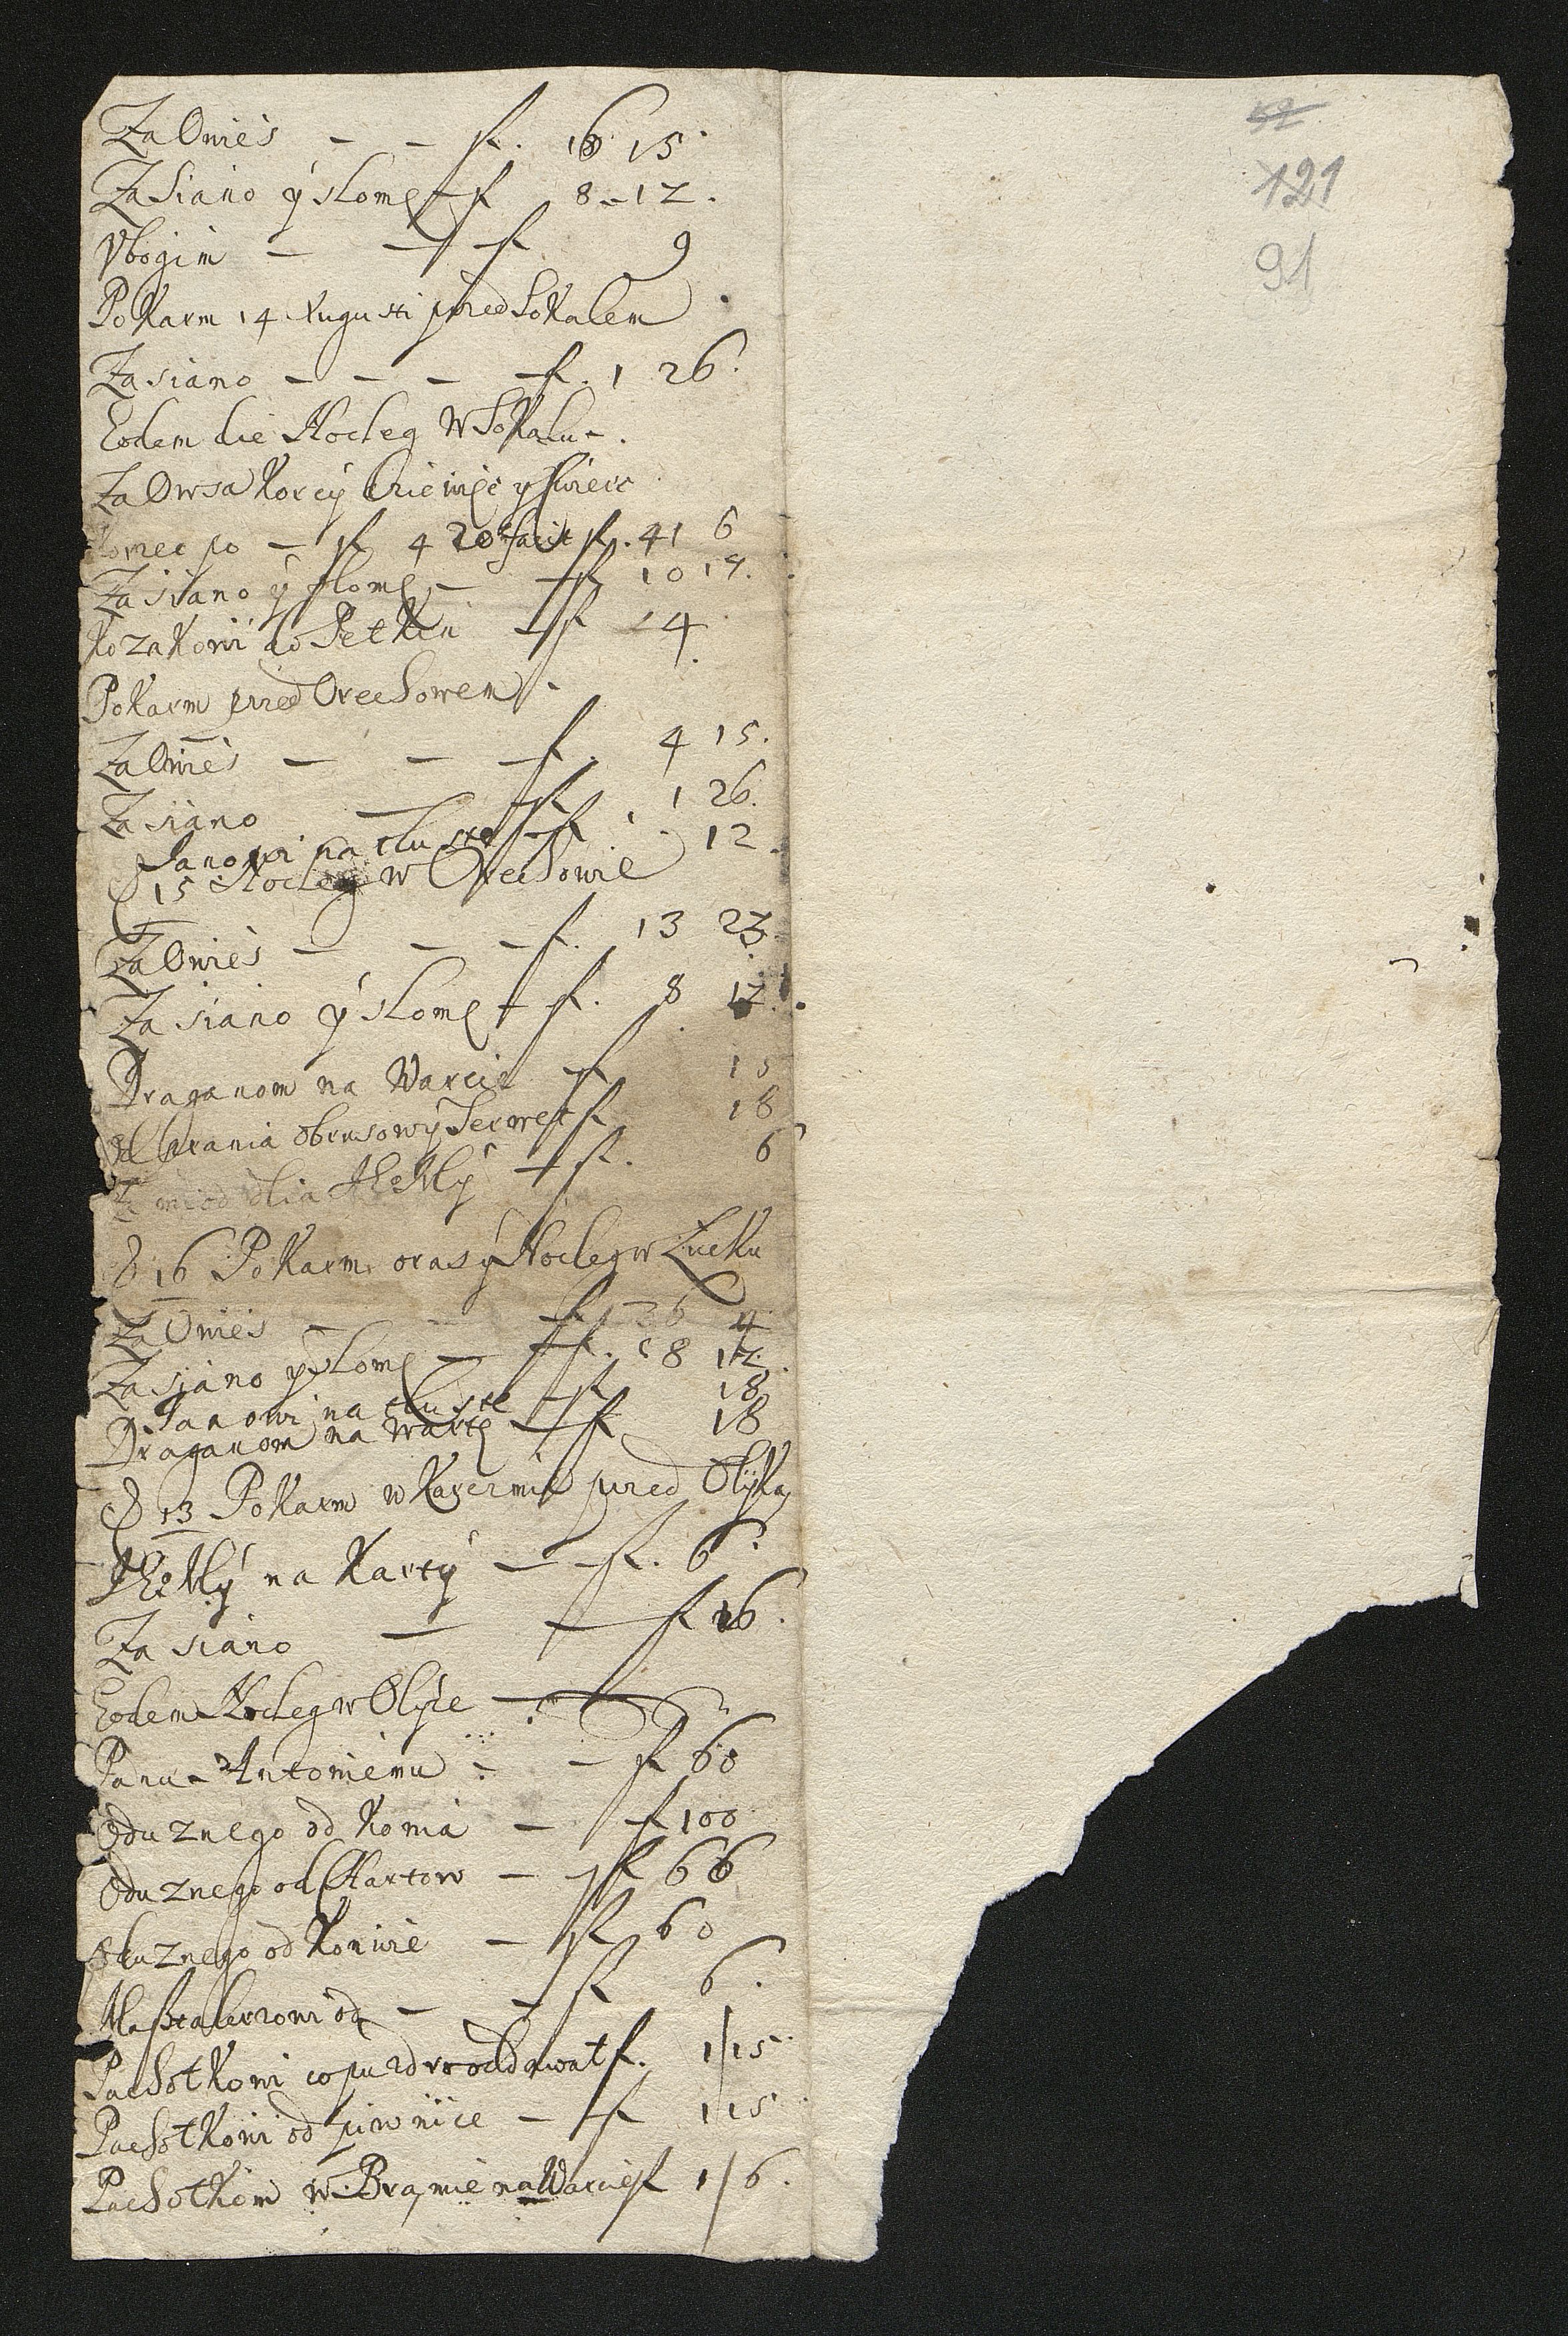 Za Owies - - f. 16 15.
Za Siano ÿ słomę f 8 - 12.
Vbogim - - f 9
Pokarm 14 Augusti przed Sokalem
Za siano - - - f. 1 26.
Eodem die Nocleg w Sokalu.
Za Owsa Korcÿ
po - f 4 20 facit f. 41 6
Za siano ÿ słomę - f 10 14.
Kozakowi do f 4
Pokarm przed Orechowem.
Za Owies - - f. 4 15.
Za siano - f 1 26.
Janowi na tłuste f 12.
D 15 Nocleg w Orechowie
Za Owies - - - f. 13 23
Za siano ÿ słomę - f. 8 12.
Draganom na Warcie f 15
Od prania obrusow ÿ Serwet f 18
Za miod dlia Thekly - f. 6
D 16 Pokarm oras ÿ Nocleg w Łucku
Za Owies - - f. 36 4
Za siano ÿ słomę - f. 18 12.
Janowi na tłuste f 18
Draganom na wartę - f 18
D 13 Pokarm w przed Ołÿką
Thekly na Kartÿ - f. 6.
Za siano - - f 16.
Eodem Nocleg w Ołyce -
Panu Antoniemu - f 60
Odu znego od Konia - f 100
Odu znego od Chartow - f 66
znego od - f 60
Masztalerzowi od - - f 6.
Pachołkowi co puzdro oddawał f. 1/15
Pachołkowi od piwnice - f 1 15
Pachołkom w Bramie na Warcie f 1/6.
52
121
91